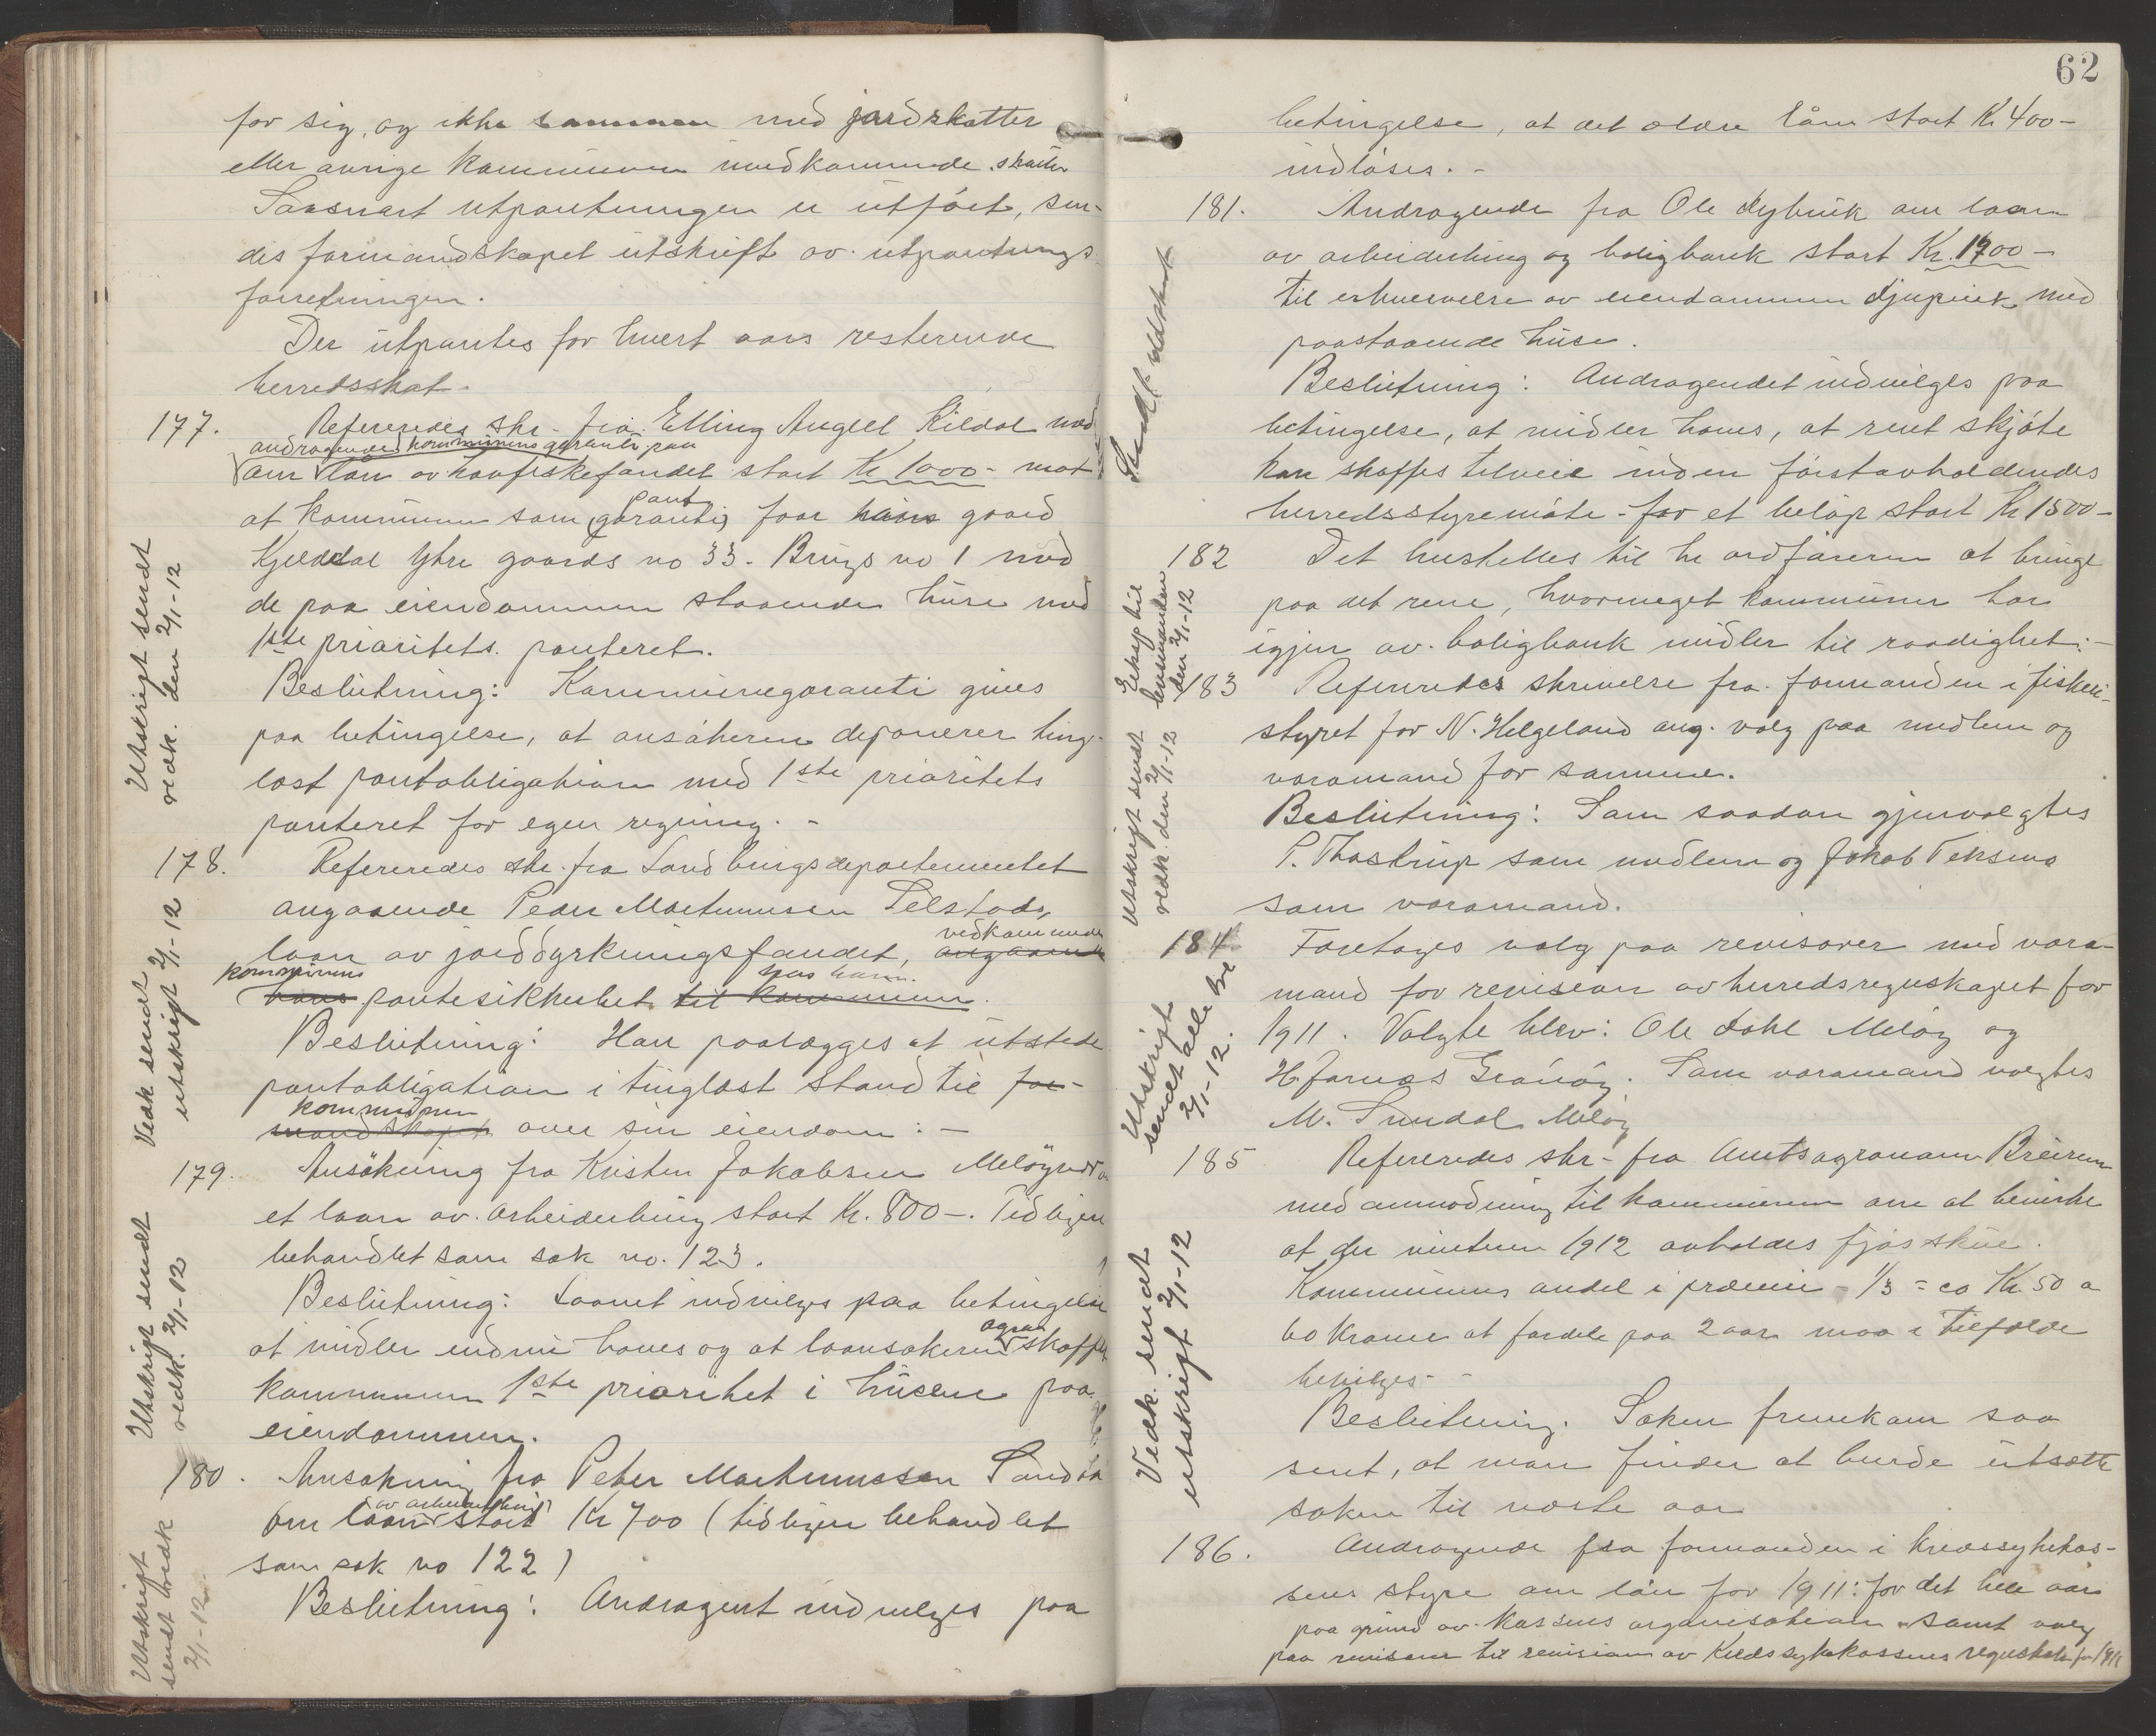 for sig, og ikke sammen med jordskatter
eller øvrige kommunen vedkommende skatter
Saasnart utpantningen er utført, sen-
des formandskapet utskrift av utpantnings-
forretningen.
Der utpantes for hvert aars resterende
herredsskat.
177. Refereredes skr. fra Elling Angell Kildal med
andragende kommunens garanti paa
om lån av havfiskefondet stort Kr 1000- mot
pant
at kommunen som garanti faar hans gaard
Kjeldal Ytre gaards no 33. Brugs no 1 med
de paa eiendommen staaende huse med
1ste prioritets panteret.
Beslutning: Kommunegaranti gives
paa betingelse, at ansøkeren deponerer ting-
læst pantobligation med 1ste prioritets
panteret for egen regning. -
Utskrift sendt
vedk. den 2/1-12
178. Refereredes skr. fra Landbrugsdepartementet
angaaende Peder Martinusen Selstads,
vedkommende
laan av jorddyrkningsfondet, angaaende
kommunens hos ham.
hans pantesikkerhet til kommunen.
Beslutning: Han paalægges at utstede
pantobligation i tinglæst stand til for-
kommunen
mandskapet over sin eiendom: -
Vedk sendt
utskrift 2/1-12
179. Ansøkning fra Kristen Jakobsen Meløy
et laan av arbeiderbrug stort Kr. 800-. Tidligere
behandlet som sak no. 123.
Beslutning: Laanet indvilges paa betingelse
at midler endnu haves og at laansøkeren skaffer
kommunen 1ste prioritet i husene paa
eiendommen.
Utskrift sendt
vedk. 2/1-12
180. Ansøkning fra Peter Martinussen Sand
av arbeiderbrug
om laan stort Kr 700 (tidligere behandlet
som sak no 122)
Beslutning: Andraget indvilges paa
Utskrift
sendt vedk
2/1-12
62
betingelse, at det ældre lån stort Kr 400-
indløses. -
181. Andragende fra Ole Dybvik om laan
av arbeiderbrug og boligbank stort Kr. 1900-
til erhvervelse av eiendommen Djupvik med
paastaaende huse.
Beslutning: Andragendet indvilges paa
betingelse, at midler haves, at rent skjøte
kan skaffes tilveie inden førstavholdendes
herredsstyremøte - for et beløp stort Kr 1500-
Sendt utskrift
182 Det henstilles til hr ordføreren at bringe
paa det rene, hvormeget kommunen har
igjen av boligbank midler til raadighet: -
Ekssp til
lensmanden
den 2/1-12
183 Refereredes skrivelse fra formanden i fiskeri-
styret for N. Helgeland ang. valg paa medlem og
varamand for samme.
Beslutning: Som saadan gjenvalgtes
P. Thastrup som medlem og Jakob Teksmo
som varamand.
Utskrift sendt
vedk. den 2/1-12
184. Foretages valg paa revisorer med vara-
mand for revision av herredsregnskapet for
1911. Valgte blev: Ole Dahl Meløy og
H. Jornæs Grønøy. Som varamand valgtes
M. Sundal Meløy
Utskrift
sendt alle tre
2/1-12.
185 Refereredes skr- fra Amtsagronom Breirem
med anmodning til kommunen om at bevirke
at der vinteren 1912 avholdes fjøsskue.
Kommunens andel i præmie - 1/3 = ca Kr. 50 a
60 Kroner at fordele paa 2 aar maa i tilfælde
bevilges. -
Beslutning. Saken fremkom saa
sent, at man finder at burde utsætte
saken til næste aar
Vedk. sendt
utskrift 2/1-12
186. Andragende fra formanden i kredssykekas-
sens styre om løn for 1911: for det hele aar
paa grund av kassens organisation samt valg
paa revisorer til revision av Kredssykekassens regnskab for 1911